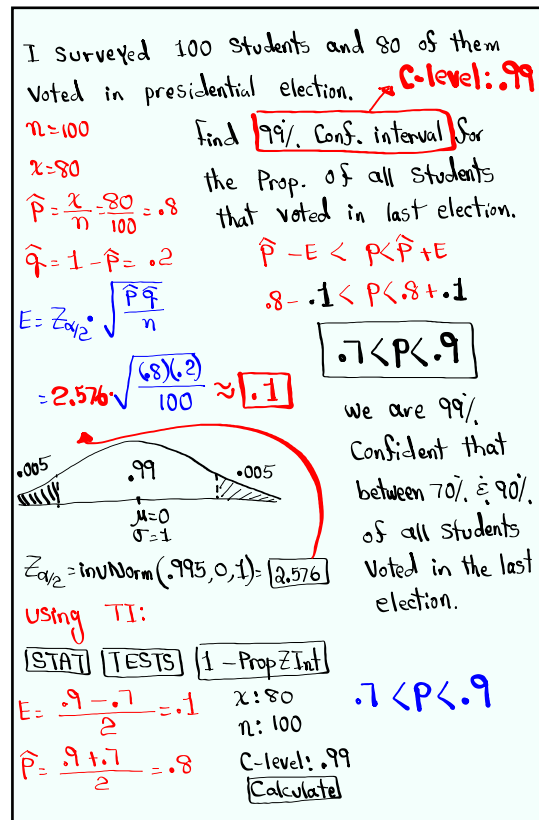 I Surveyed 100 Students and 80 of them
Voted in presidential election.
C-level: .99
n=100
Find 99% Conf. interval for
x=80
the Prop. of all Students
p̂ = x/n = 80/100 = .8
that voted in last election.
q̂ = 1 - p̂ = .2
p̂ - E < P < p̂ + E
.8 - .1 < P < .8 + .1
E = Zα/2 · √(p̂ q̂ / n)
.7 < P < .9
= 2.576 · √((.8)(.2) / 100) ≈ .1
we are 99%
Confident that
between 70% & 90%
of all Students
Voted in the last
election.
.005 .99 .005
μ=0
σ=1
Zα/2 = invNorm(.995,0,1) = 2.576
Using TI:
STAT TESTS 1-PropZInt
E = (.9 - .7) / 2 = .1
x: 80
n: 100
.7 < P < .9
p̂ = (.9 + .7) / 2 = .8
C-level: .99
Calculate